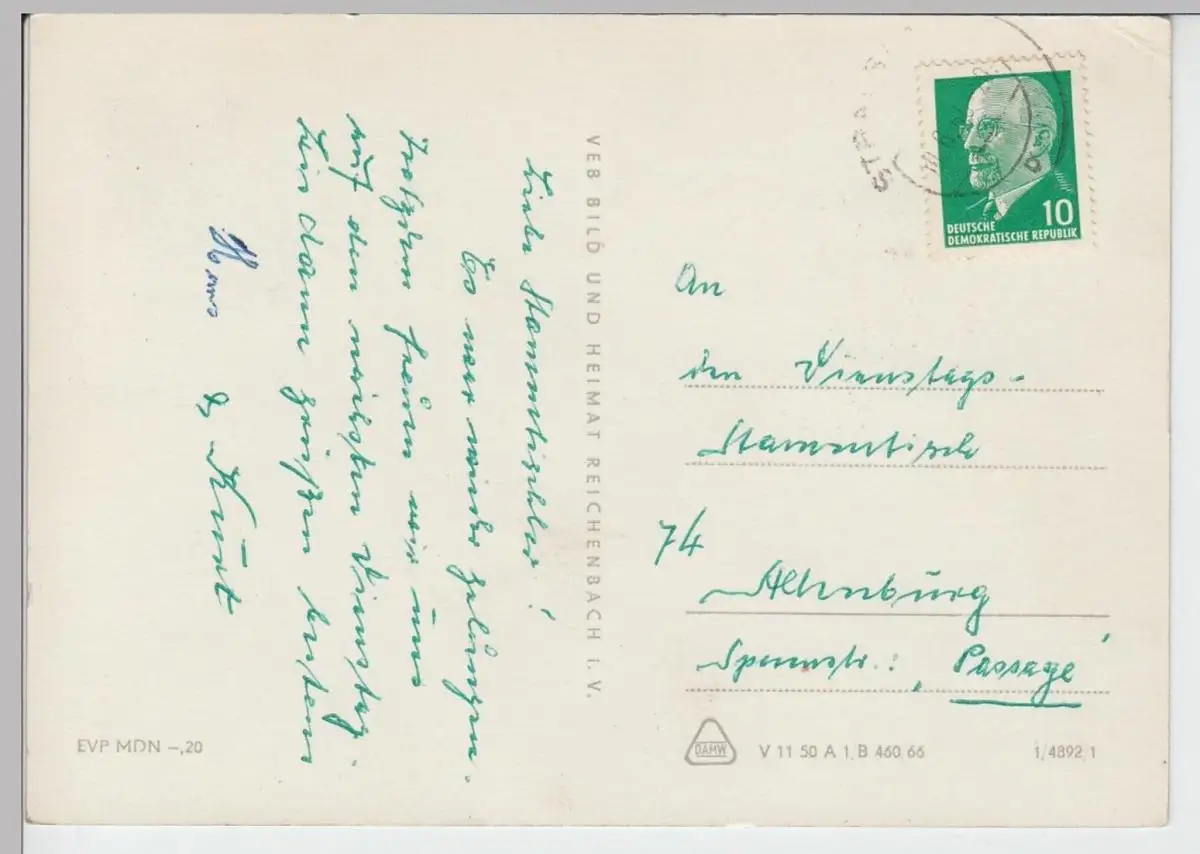 Liebe Stammtischler!
Es war wieder gelungen.
Trotzdem freuen wir uns
auf den nächsten Dienstag.
Bis dann grüßen bestens
Hans & Kurt
VEB BILD UND HEIMAT REICHENBACH i. V.
EVP MDN –,20
10
DEUTSCHE
DEMOKRATISCHE REPUBLIK
An
den Dienstags-
Stammtisch
74
Altenburg
Spornstr.: „Passage"
DAMW
V 11 50 A 1, B 460, 66
1/4892, 1